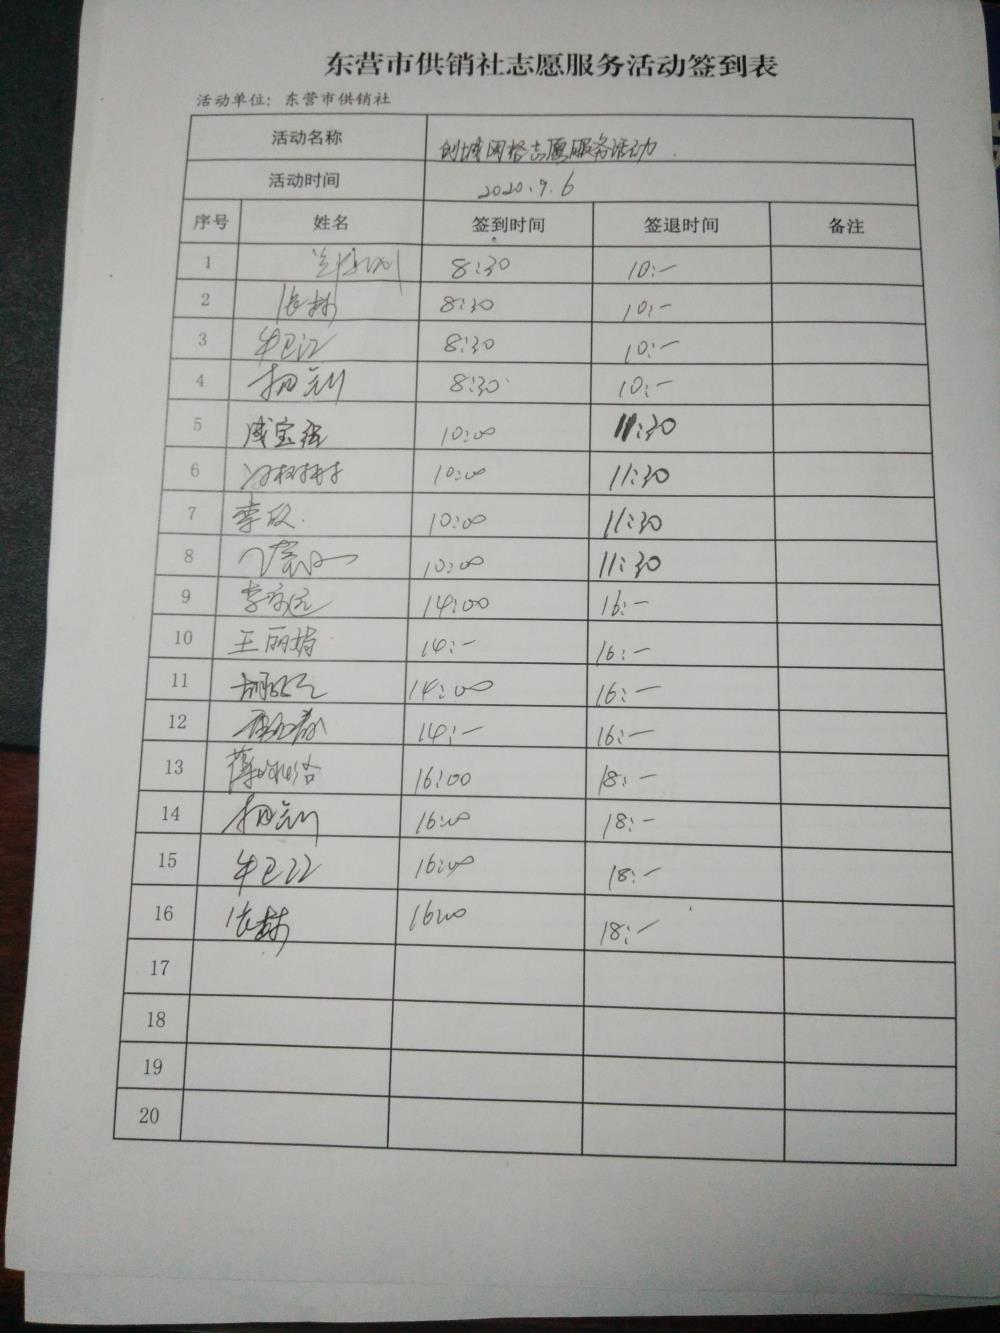 东营市供销社志愿服务活动签到表
活动单位：东营市供销社
活动名称 创城网格志愿服务活动
活动时间 2020.9.6
序号 姓名 签到时间 签退时间 备注
1 8:30 10:一
2 张林 8:30 10:一
3 8:30 10:一
4 8:30 10:一
5 成宝强 10:00 11:30
6 10:00 11:30
7 李欣 10:00 11:30
8 10:00 11:30
9 14:00 16:一
10 王丽娟 14:一 16:一
11 14:00 16:一
12 14:一 16:一
13 16:00 18:一
14 16:00 18:一
15 16:00 18:一
16 张林 16:00 18:一
17
18
19
20